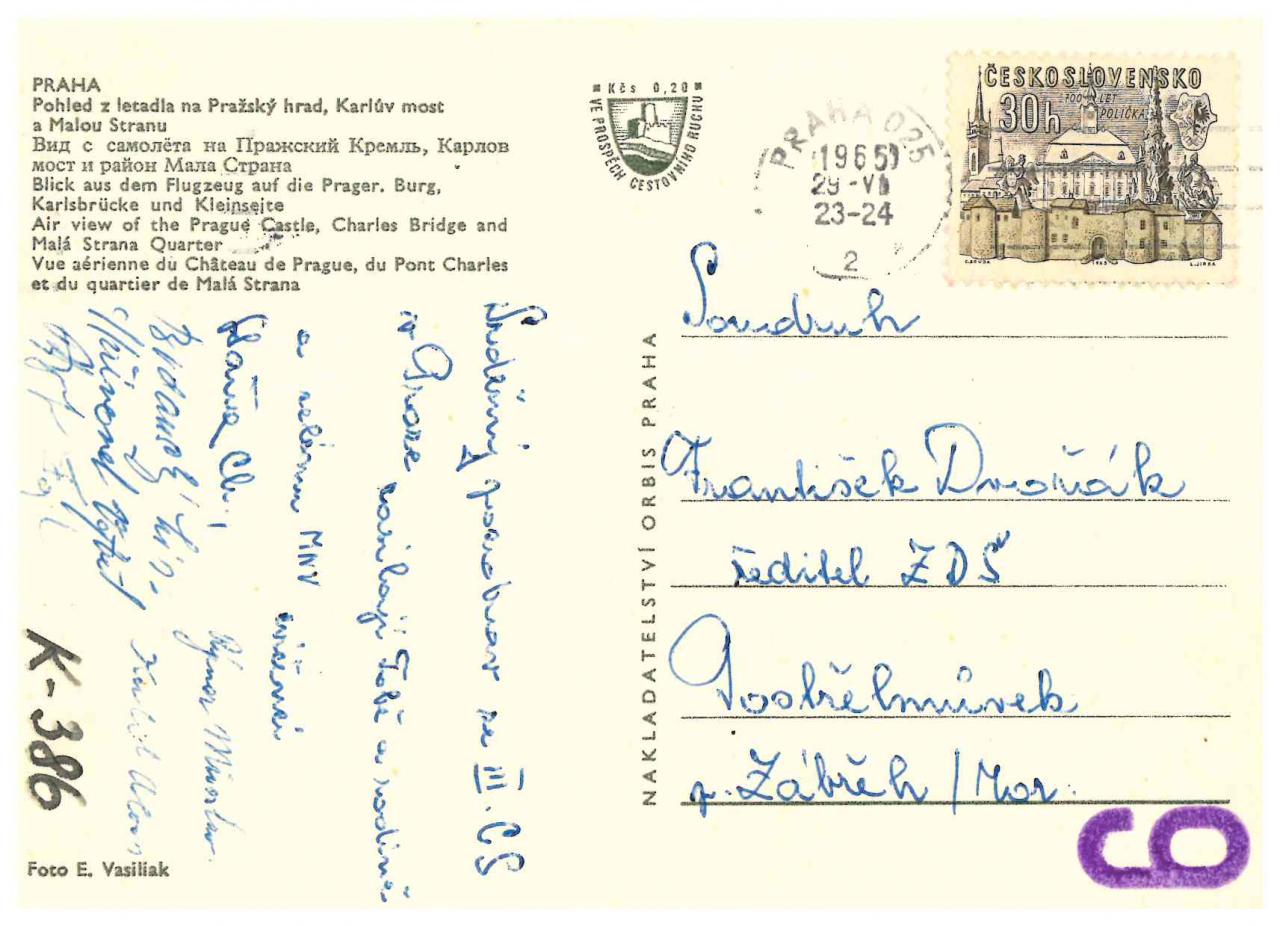 PRAHA
Pohled z letadla na Pražský hrad, Karlův most
a Malou Stranu
Вид с самолёта на Пражский Кремль, Карлов
мост и район Мала Страна
Blick aus dem Flugzeug auf die Prager. Burg,
Karlsbrücke und Kleinseite
Air view of the Prague Castle, Charles Bridge and
Malá Strana Quarter
Vue aérienne du Château de Prague, du Pont Charles
et du quartier de Malá Strana
Kčs 0,20
VE PROSPĚCH CESTOVNÍHO RUCHU
PRAHA 025
1965
29-VI
23-24
2
ČESKOSLOVENSKO
700 LET
POLIČKA
30h
Srdečný pozdrav ze III. CS
v Praze zasílají Tobě a rodině
a celému MNV cvičenci
Rýnar Miroslav
K-386
Foto E. Vasiliak
NAKLADATELSTVÍ ORBIS PRAHA
Soudruh
František Dvořák
ředitel ZDŠ
Postřelmůvek
p. Zábřeh / Mor.
9